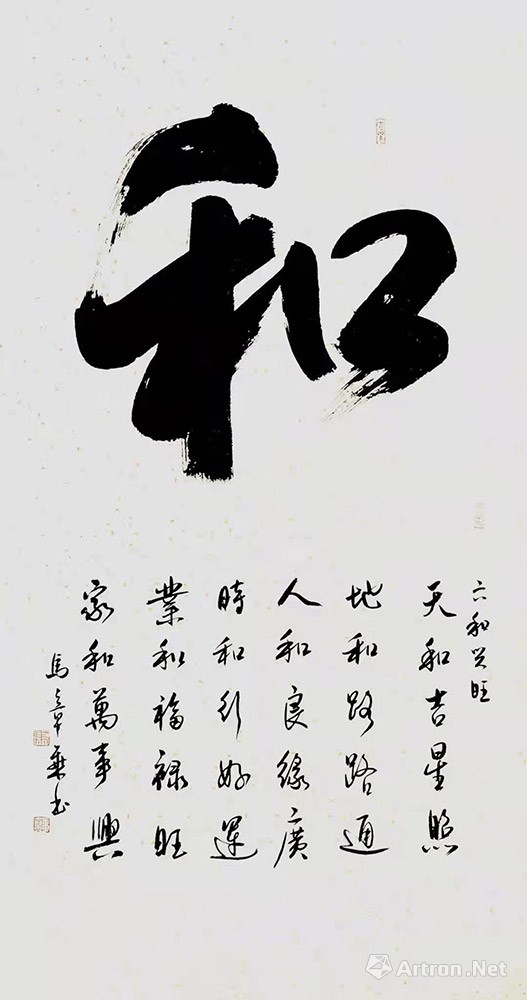 和
六和兴旺
天和吉星照
地和路路通
人和良缘廣
時和行好運
業和福禄旺
家和萬事興
馬章乘书
Artron.Net